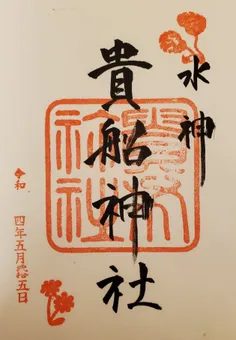 水神
貴船神社
令和
四年五月五日